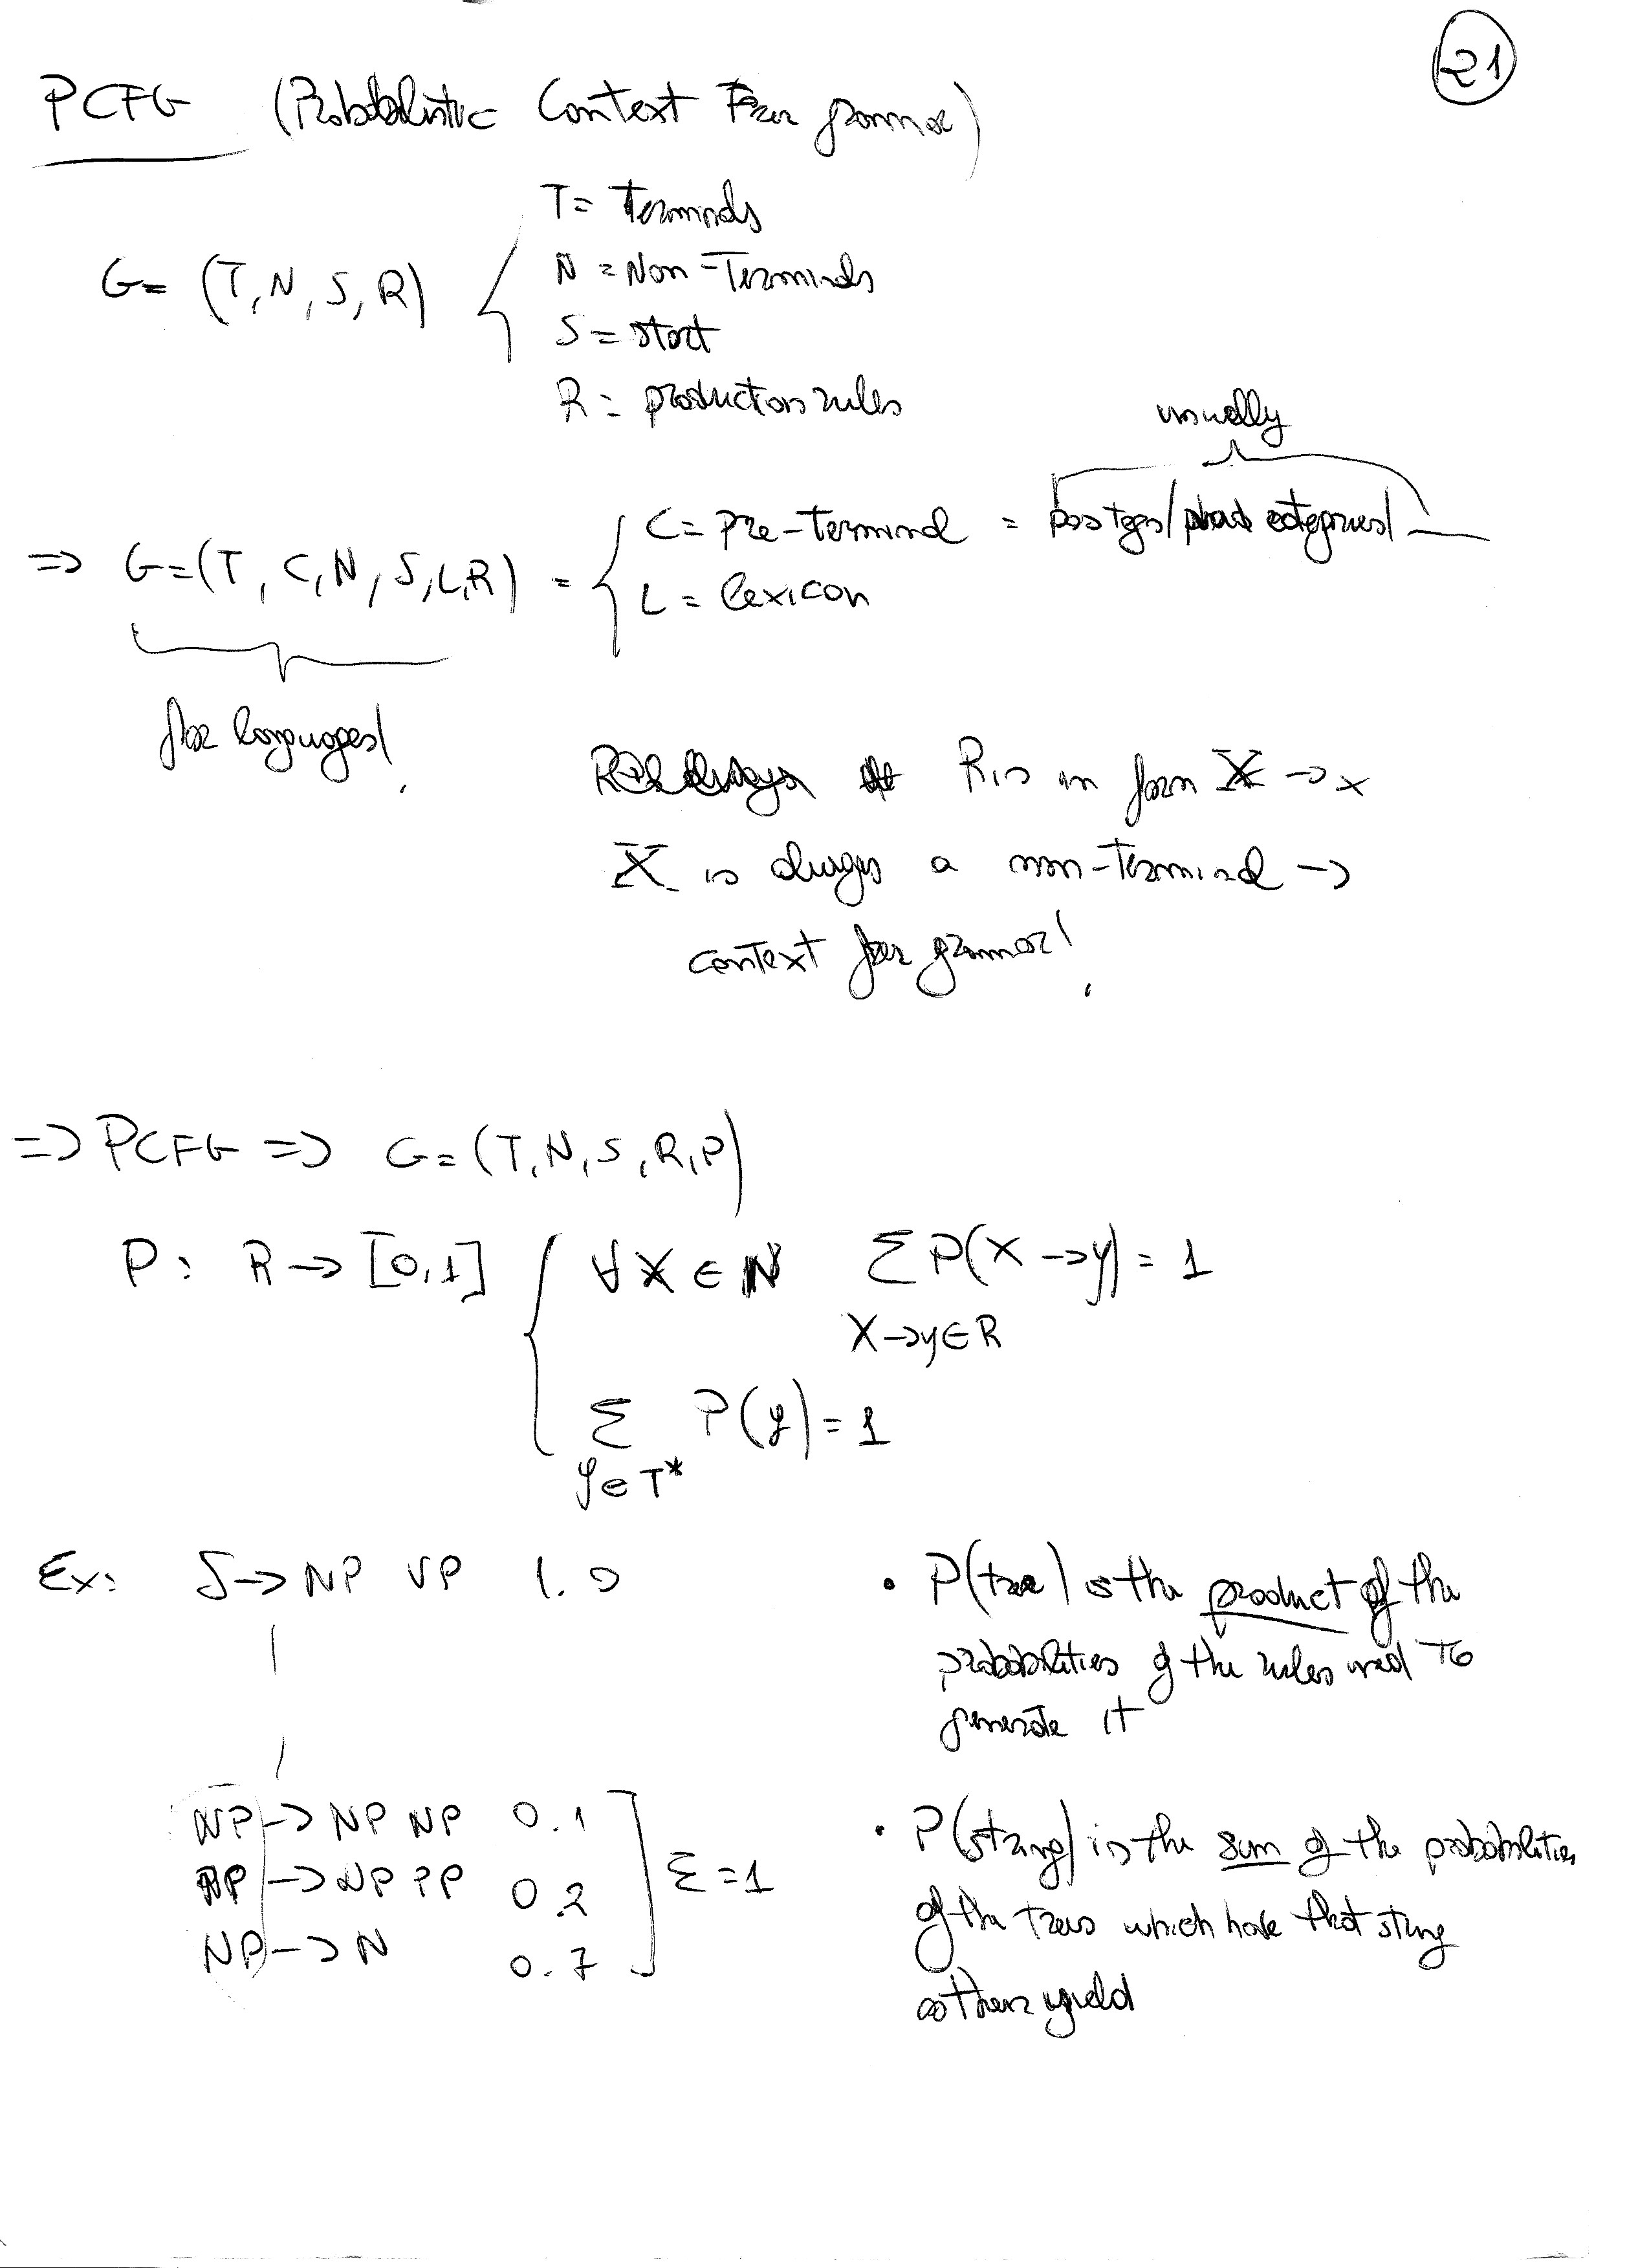 21
PCFG (Probabilistic Context Free grammar)
T = Terminals
G = (T, N, S, R)
N = Non-Terminals
S = start
R = production rules
usually
C = pre-terminal = pos tags / categories /
⇒ G = (T, C, N, S, L, R) =
L = lexicon
for languages!
R is in form X → x
X is always a non-terminal →
context free grammar!
⇒ PCFG ⇒ G = (T, N, S, R, P)
P: R → [0,1] ∀ X ∈ N Σ P(X → y) = 1
X → y ∈ R
Σ P(y) = 1
y ∈ T*
Ex: S → NP VP 1.0
NP → NP NP 0.1
NP → NP PP 0.2 Σ = 1
NP → N 0.7
• P(tree) is the product of the
probabilities of the rules used to
generate it
• P(string) is the sum of the probabilities
of the trees which have that string
as their yield